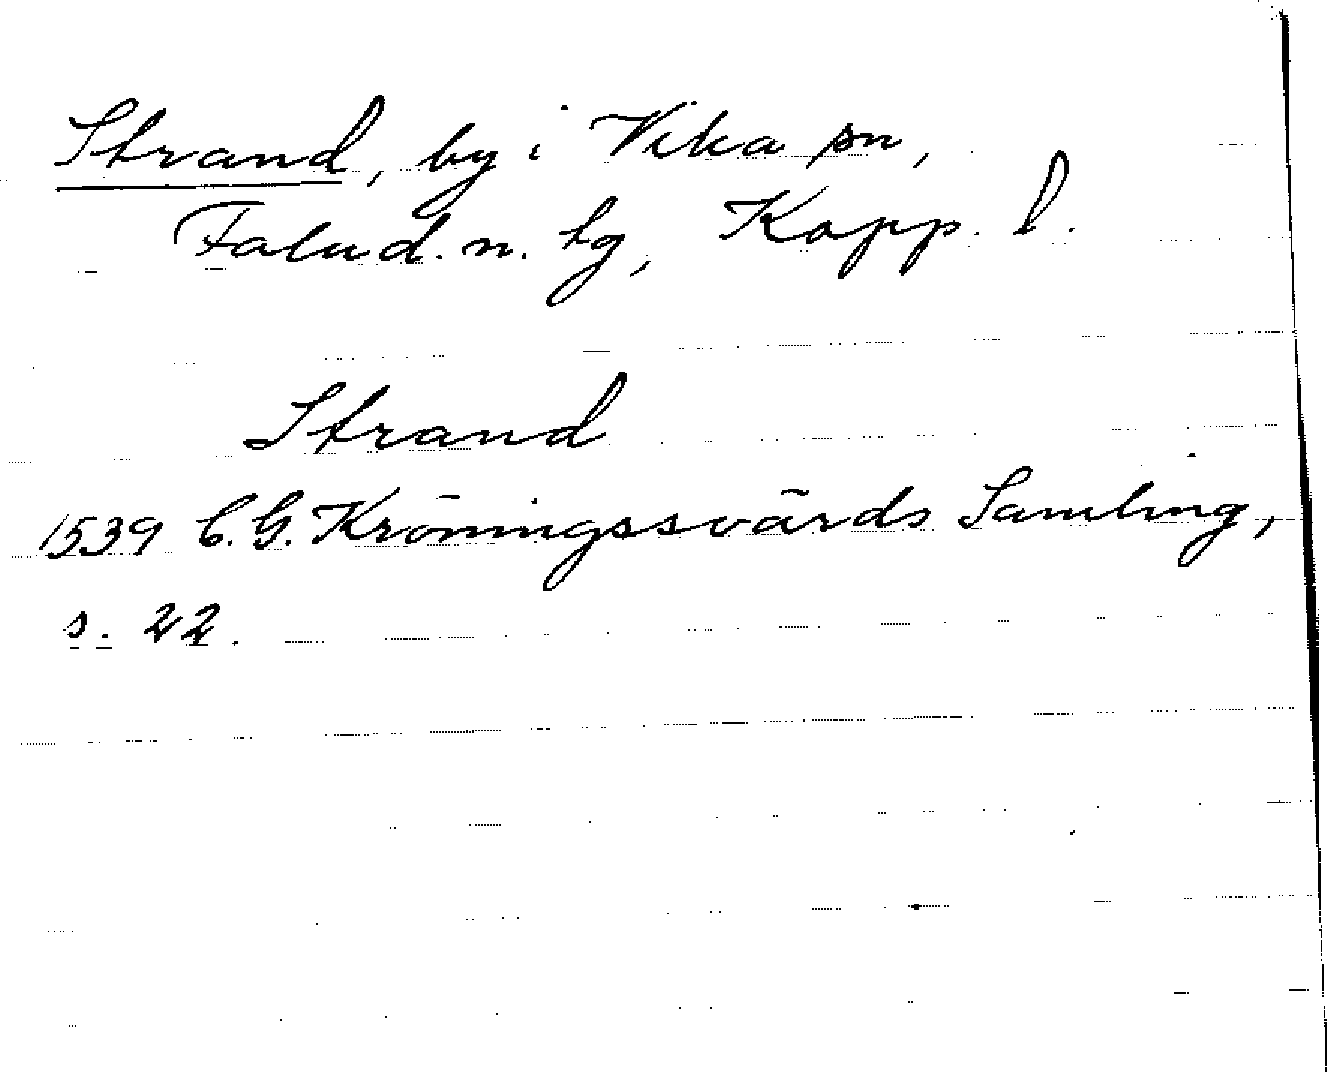 Strand, by i Vika sn,
Falu d. n. tg, Kopp. l.
Strand
1539 C. G. Kröningssvärds Samling,
s. 22.